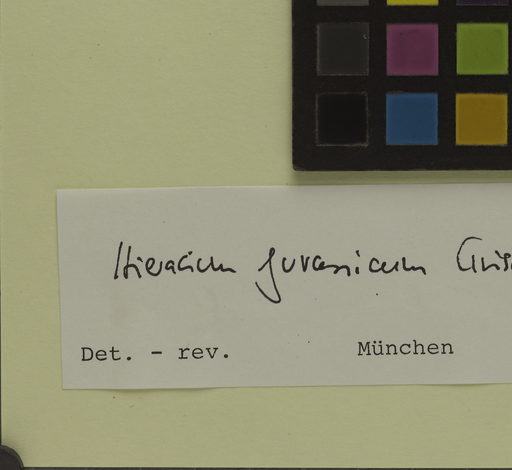 Hieracium jurassicum Gris
Det. - rev. München